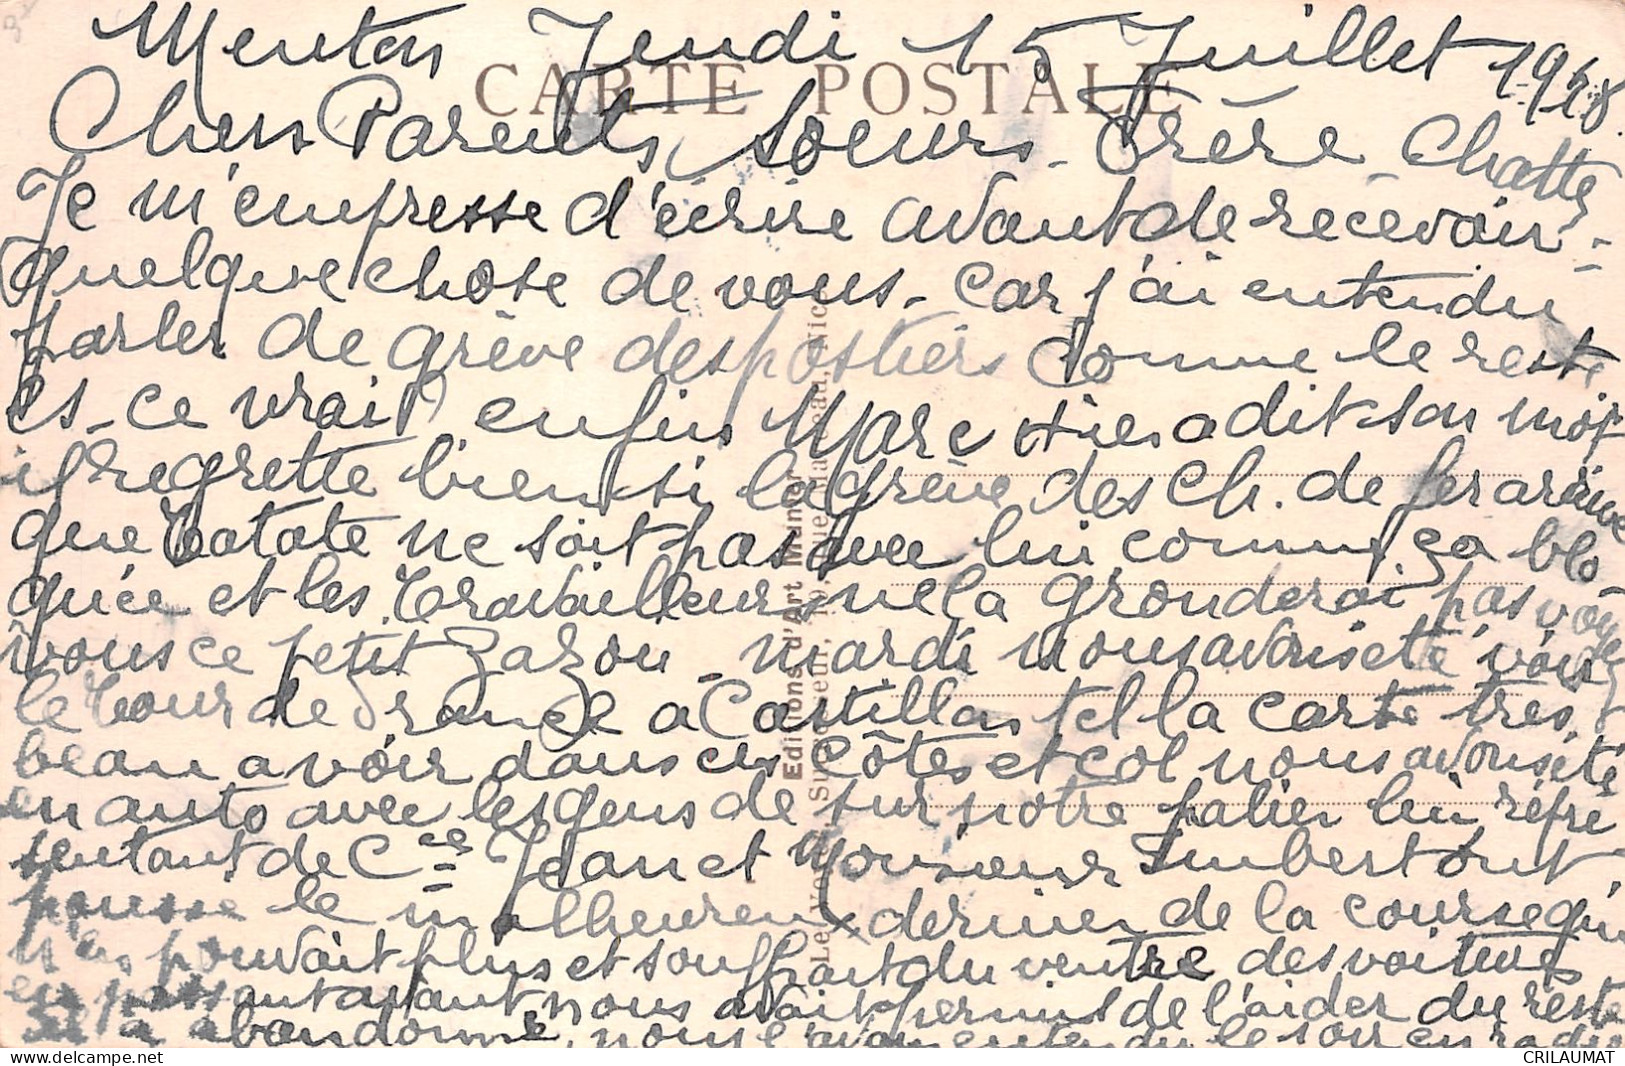 Menton Jeudi 15 Juillet 1948.
CARTE POSTALE
Chers Parents, Soeurs - Frère - Chattes
Je m'empresse d'écrire avant de recevoir -
quelque chose de vous - car j'ai entendu
parler de grève des postiers comme le reste
es-ce vrai ? enfin Marc hier a dit son mot
il regrette bien si la grève des Ch. de fer arrive
que Tatate ne soit pas avec lui, comme ça blo
quée et les travailleurs ne la gronderai pas voyez
vous ce petit Zazou - mardi nous avons été voir
le Tour de France a Castillon tel la carte très
beau a voir dans ces Côtes et col nous avons été
en auto avec les gens de sur notre palier lui, repré
sentant de Cce Jean et Monsieur Imbert ont
pousse le malheureux dernier de la course qui
n'en pouvait plus et souffrait du ventre des voitures
en passant avant nous avait permis de l'aider du reste
il a abandonné, nous l'avons entendu le soir en radio
Editions d'Art Munier
Successeur, 19, rue Nice
CRILAUMAT